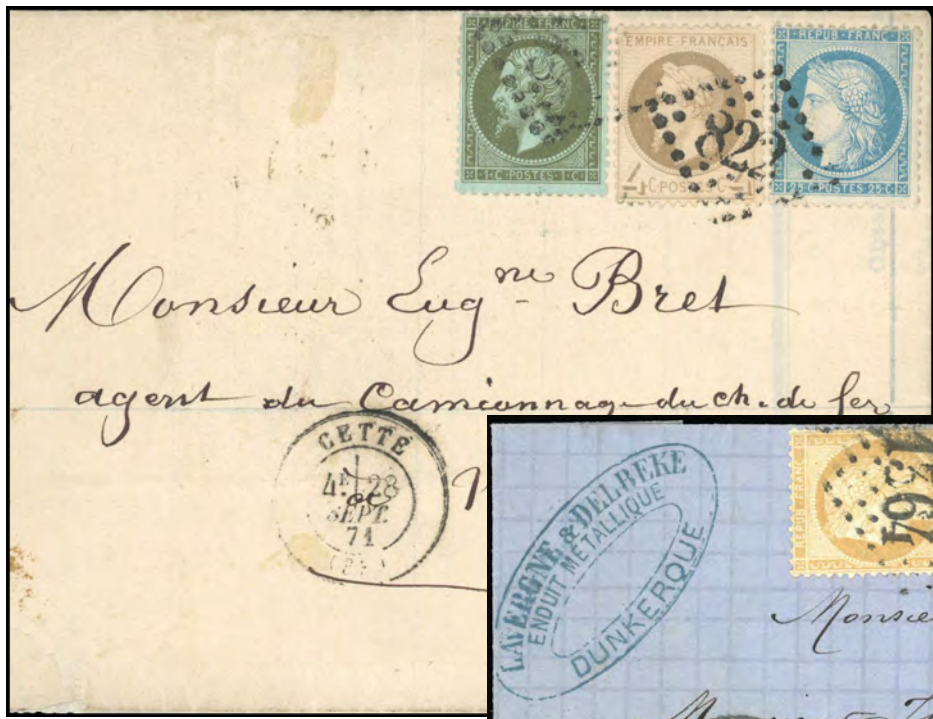 EMPIRE FRANC
1·C·POSTES·1·C
EMPIRE FRANÇAIS
4 C·POSTES·C·4
REPUB·FRANC
25·C·POSTES·25·C
822
Monsieur Eug<sup>ne</sup> Bret
agent du Camionnage du ch. de fer
CETTE
4E 28
SEPT.
71
LAVERGNE & DELBEKE
ENDUIT METALLIQUE
DUNKERQUE
REPUB FRANC
Monsie